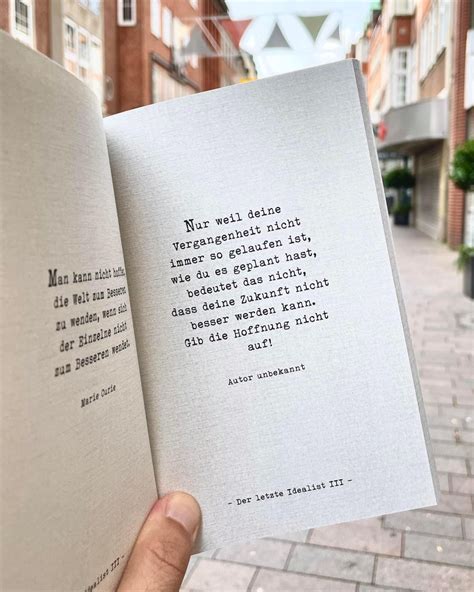 Man kann nicht hoffen,
die Welt zum Besseren
zu wenden, wenn sich
der Einzelne nicht
zum Besseren wendet.
Marie Curie
Idealist III -
Nur weil deine
Vergangenheit nicht
immer so gelaufen ist,
wie du es geplant hast,
bedeutet das nicht,
dass deine Zukunft nicht
besser werden kann.
Gib die Hoffnung nicht
auf!
Autor unbekannt
- Der letzte Idealist III -